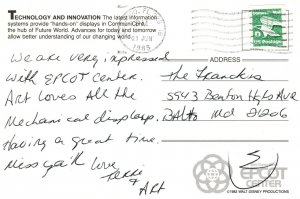 TECHNOLOGY AND INNOVATION The latest information
systems provide "hands-on" displays in CommuniCore,
the hub of Future World. Advances for today and tomorrow
allow better understanding of our changing world.
We are very impressed
with EPCOT Center.
Art loves All the
Mechanical displays.
Having a great time.
Miss ya'll Love,
Terri
+
Art
1985
ADDRESS
The Francks
5943 Benton Hghts Ave
BALto Md 21206
EPCOT
CENTER
©1982 WALT DISNEY PRODUCTIONS